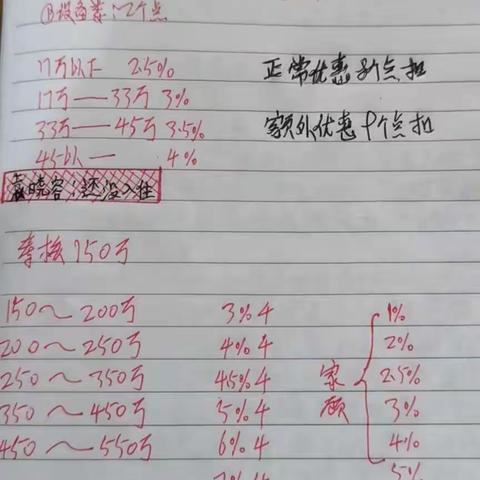 ②设备荐:2个点
17万以下 2.5%
正常优惠8个点扣
17万——33万 3%
33万——45万 3.5%
额外优惠9个点扣
45以— 4%
袁晓容:还没入住
季核150万
150～200万 3% 4
200～250万 4% 4
250～350万 4.5% 4
350～450万 5% 4
450～550万 6% 4
家顾
1%
2%
2.5%
3%
4%
5%